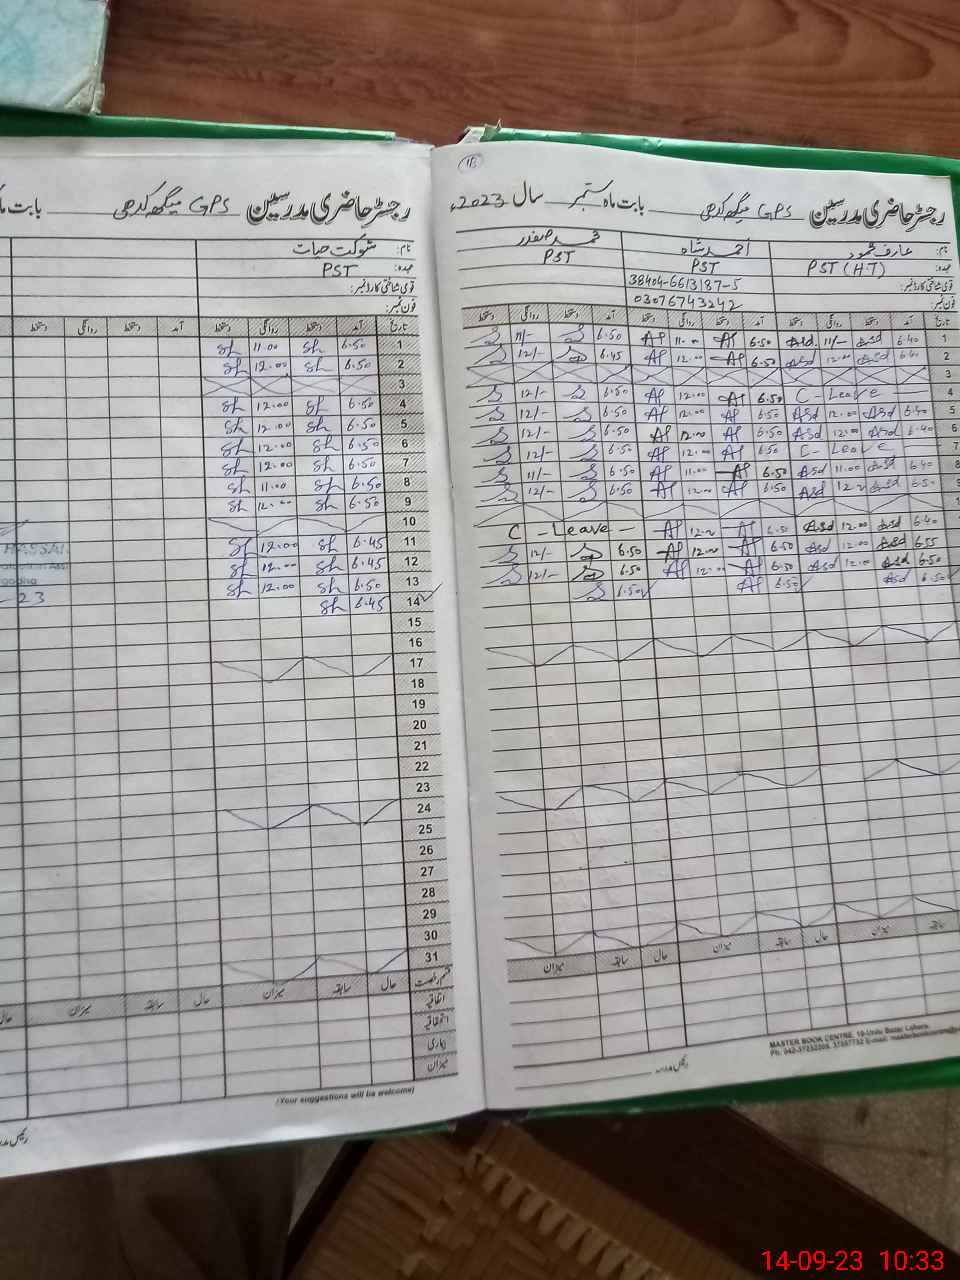 رجسٹر حاضری مدرسین GPS میگھ کدھی بابت ماہ ستمبر سال 2023ء
نام: عارف محمود احمد شاہ محمد صفدر
عہدہ: PST (HT) PST PST
قومی شناختی کارڈ نمبر: 38404-6613187-5
فون نمبر: 03076743242
تاریخ آمد دستخط روانگی دستخط آمد دستخط روانگی دستخط آمد دستخط روانگی دستخط
1 6.40 Asd 11/- Asd 6.50 Af 11.00 Af 6.50 11/-
2 6.40 Asd 12.00 Asd 6.50 Af 12.00 Af 6.45 12/-
3
4 C - Leave 6.50 Af 12.00 Af 6.50 12/-
5 6.40 Asd 12.00 Asd 6.50 Af 12.00 Af 6.50 12/-
6 6.40 Asd 12.00 Asd 6.50 Af 12.00 Af 6.50 12/-
7 C - Leave 6.50 Af 12.00 Af 6.50 12/-
8 6.40 Asd 11.00 Asd 6.50 Af 11.00 Af 6.50 11/-
6.50 Asd Asd 6.50 Af 12.00 Af 6.50 12/-
6.40 Asd 12.00 Asd 6.50 Af Af C - Leave -
6.55 Asd 12.00 Asd 6.50 Af 12.00 Af 6.50 12/-
6.50 Asd 12.00 Asd 6.50 Af 12.00 Af 6.50 12/-
6.50 Asd 6.50 Af 6.50
سابقہ میزان حال سابقہ میزان حال سابقہ میزان
MASTER BOOK CENTRE, 10-Urdu Bazar Lahore.
رجسٹر حاضری مدرسین GPS میگھ کدھی بابت
نام: شوکت حیات
عہدہ: PST
قومی شناختی کارڈ نمبر:
فون نمبر:
تاریخ آمد دستخط روانگی دستخط آمد دستخط روانگی دستخط
1 6.50 Sh 11.00 Sh
2 6.50 Sh 12.00 Sh
3
4 6.50 Sh 12.00 Sh
5 6.50 Sh 12.00 Sh
6 6.50 Sh 12.00 Sh
7 6.50 Sh 12.00 Sh
8 6.50 Sh 11.00 Sh
9 6.50 Sh 12.00 Sh
10
11 6.45 Sh 12.00 Sh
12 6.45 Sh 12.00 Sh
13 6.50 Sh 12.00 Sh
14 6.45 Sh
15
16
17
18
19
20
21
22
23
24
25
26
27
28
29
30
31
قسم رخصت حال سابقہ میزان حال سابقہ میزان حال
اتفاقیہ
استحقاقیہ
بیماری
میزان
(Your suggestions will be welcome)
HASSAN
14-09-23 10:33